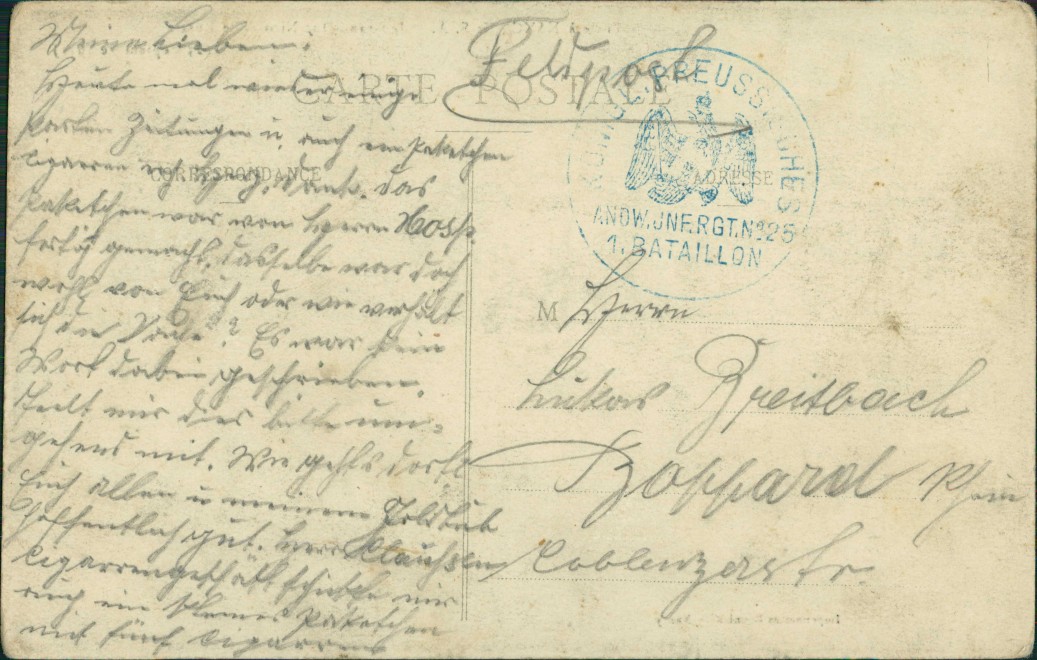 Meine Lieben.
Heute mal wieder einige
Karten Zeitungen u. auch ein Paketchen
Cigarren mit Dank. Das
Paketchen war von Herrn
fertig gemacht. Dasselbe war doch
wohl von Euch oder wie verhält
sich die Sache?? Es war kein
Wort dabei geschrieben.
Teilt mir dies bitte um-
gehend mit. Wie gehts dort
Euch allen u meinem
hoffentlich gut. Herr
Cigarrengeschäft schickte mir
auch ein kleines Paketchen
mit fünf Cigarren
Feldpost
CARTE POSTALE
CORRESPONDANCE
ADRESSE
KÖNIGL. PREUSSISCHES
LANDW. JNF. RGT. No 25
1. BATAILLON
M Herrn
Lukas Breitbach
Boppard Rhein
Coblenzerstr.